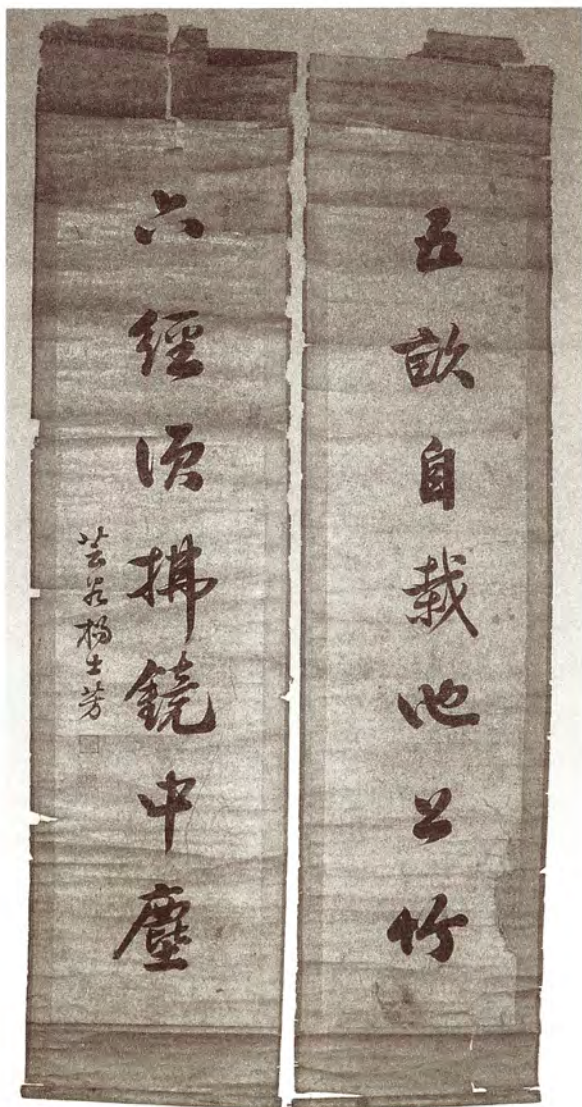 五畝自栽池上竹
六經須拂鏡中塵
芸谷楊士芳